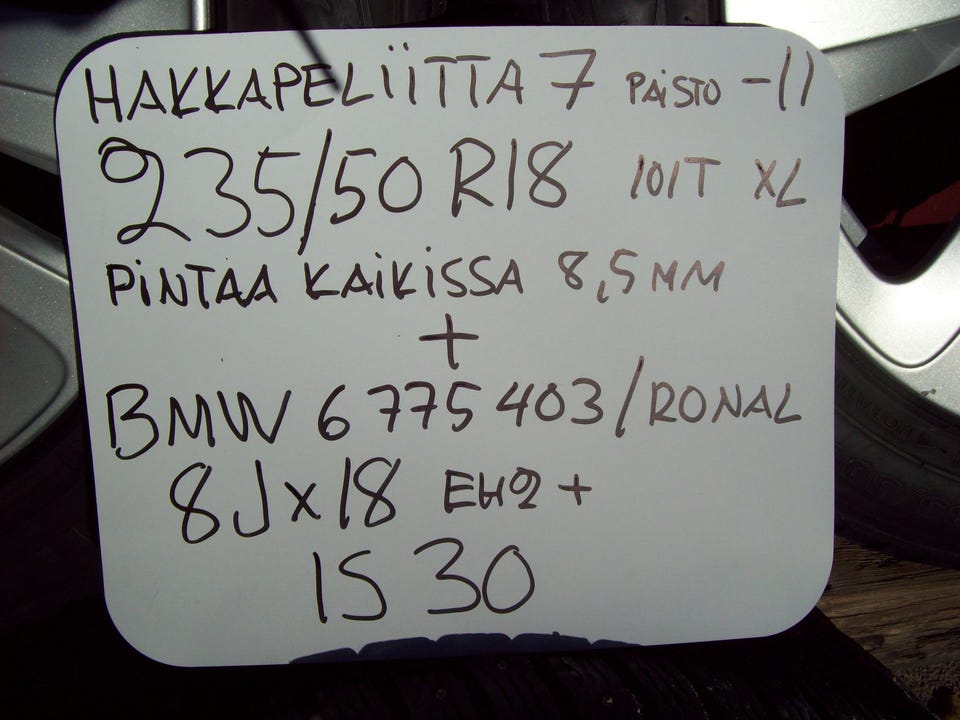 HAKKAPELiiTTA 7 PAiSTO -11
235/50 R18 101T XL
PiNTAA KAiKiSSA 8,5 MM
+
BMW 6 775 403/RONAL
8Jx18 EH2+
IS 30